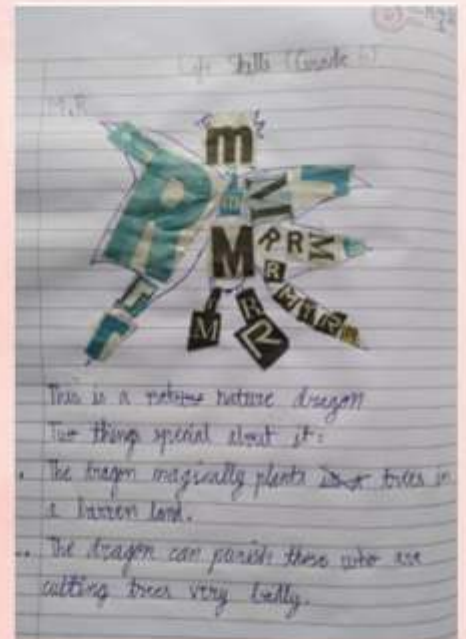 Life Skills (Grade 6)
M, R
m
m M
M R R M
R
r M I R
r M R R
This is a nature nature dragon
Two things special about it:
. The dragon magically plants trees in
a barren land.
.. The dragon can punish those who are
cutting trees very badly.